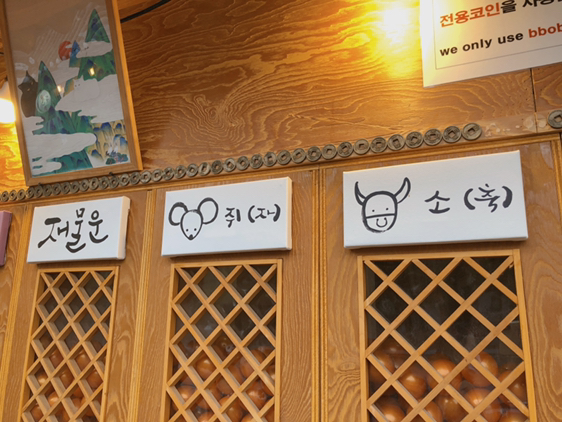 전용코인을 사용
we only use bbob
재물운
쥐 (자)
소 (축)